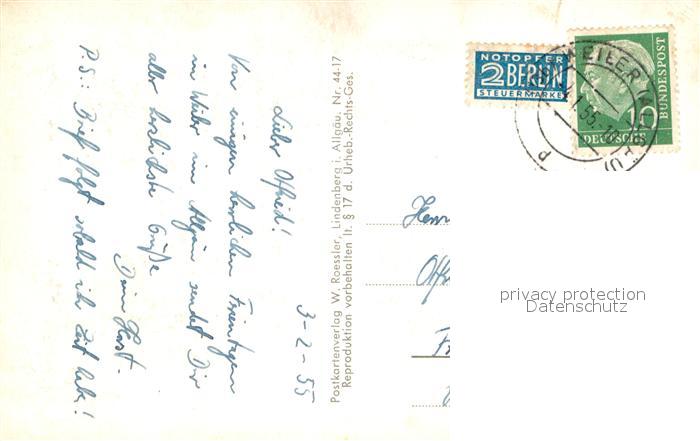 3-2-55
Lieber Otfried!
Von einigen herrlichen Ferientagen
im Weiler im Allgäu sendet Dir
aller herzlichste Grüße
Dein Horst.
P.S.: Brief folgt sobald ich Zeit habe!
Postkartenverlag W. Roessler, Lindenberg i. Allgäu, Nr. 44-17
Reproduktion vorbehalten lt. § 17 d. Urheb.-Rechts-Ges.
NOTOPFER
2 BERLIN
STEUERMARKE
WEILER
DEUTSCHE
BUNDESPOST
10
Herrn
privacy protection
Datenschutz